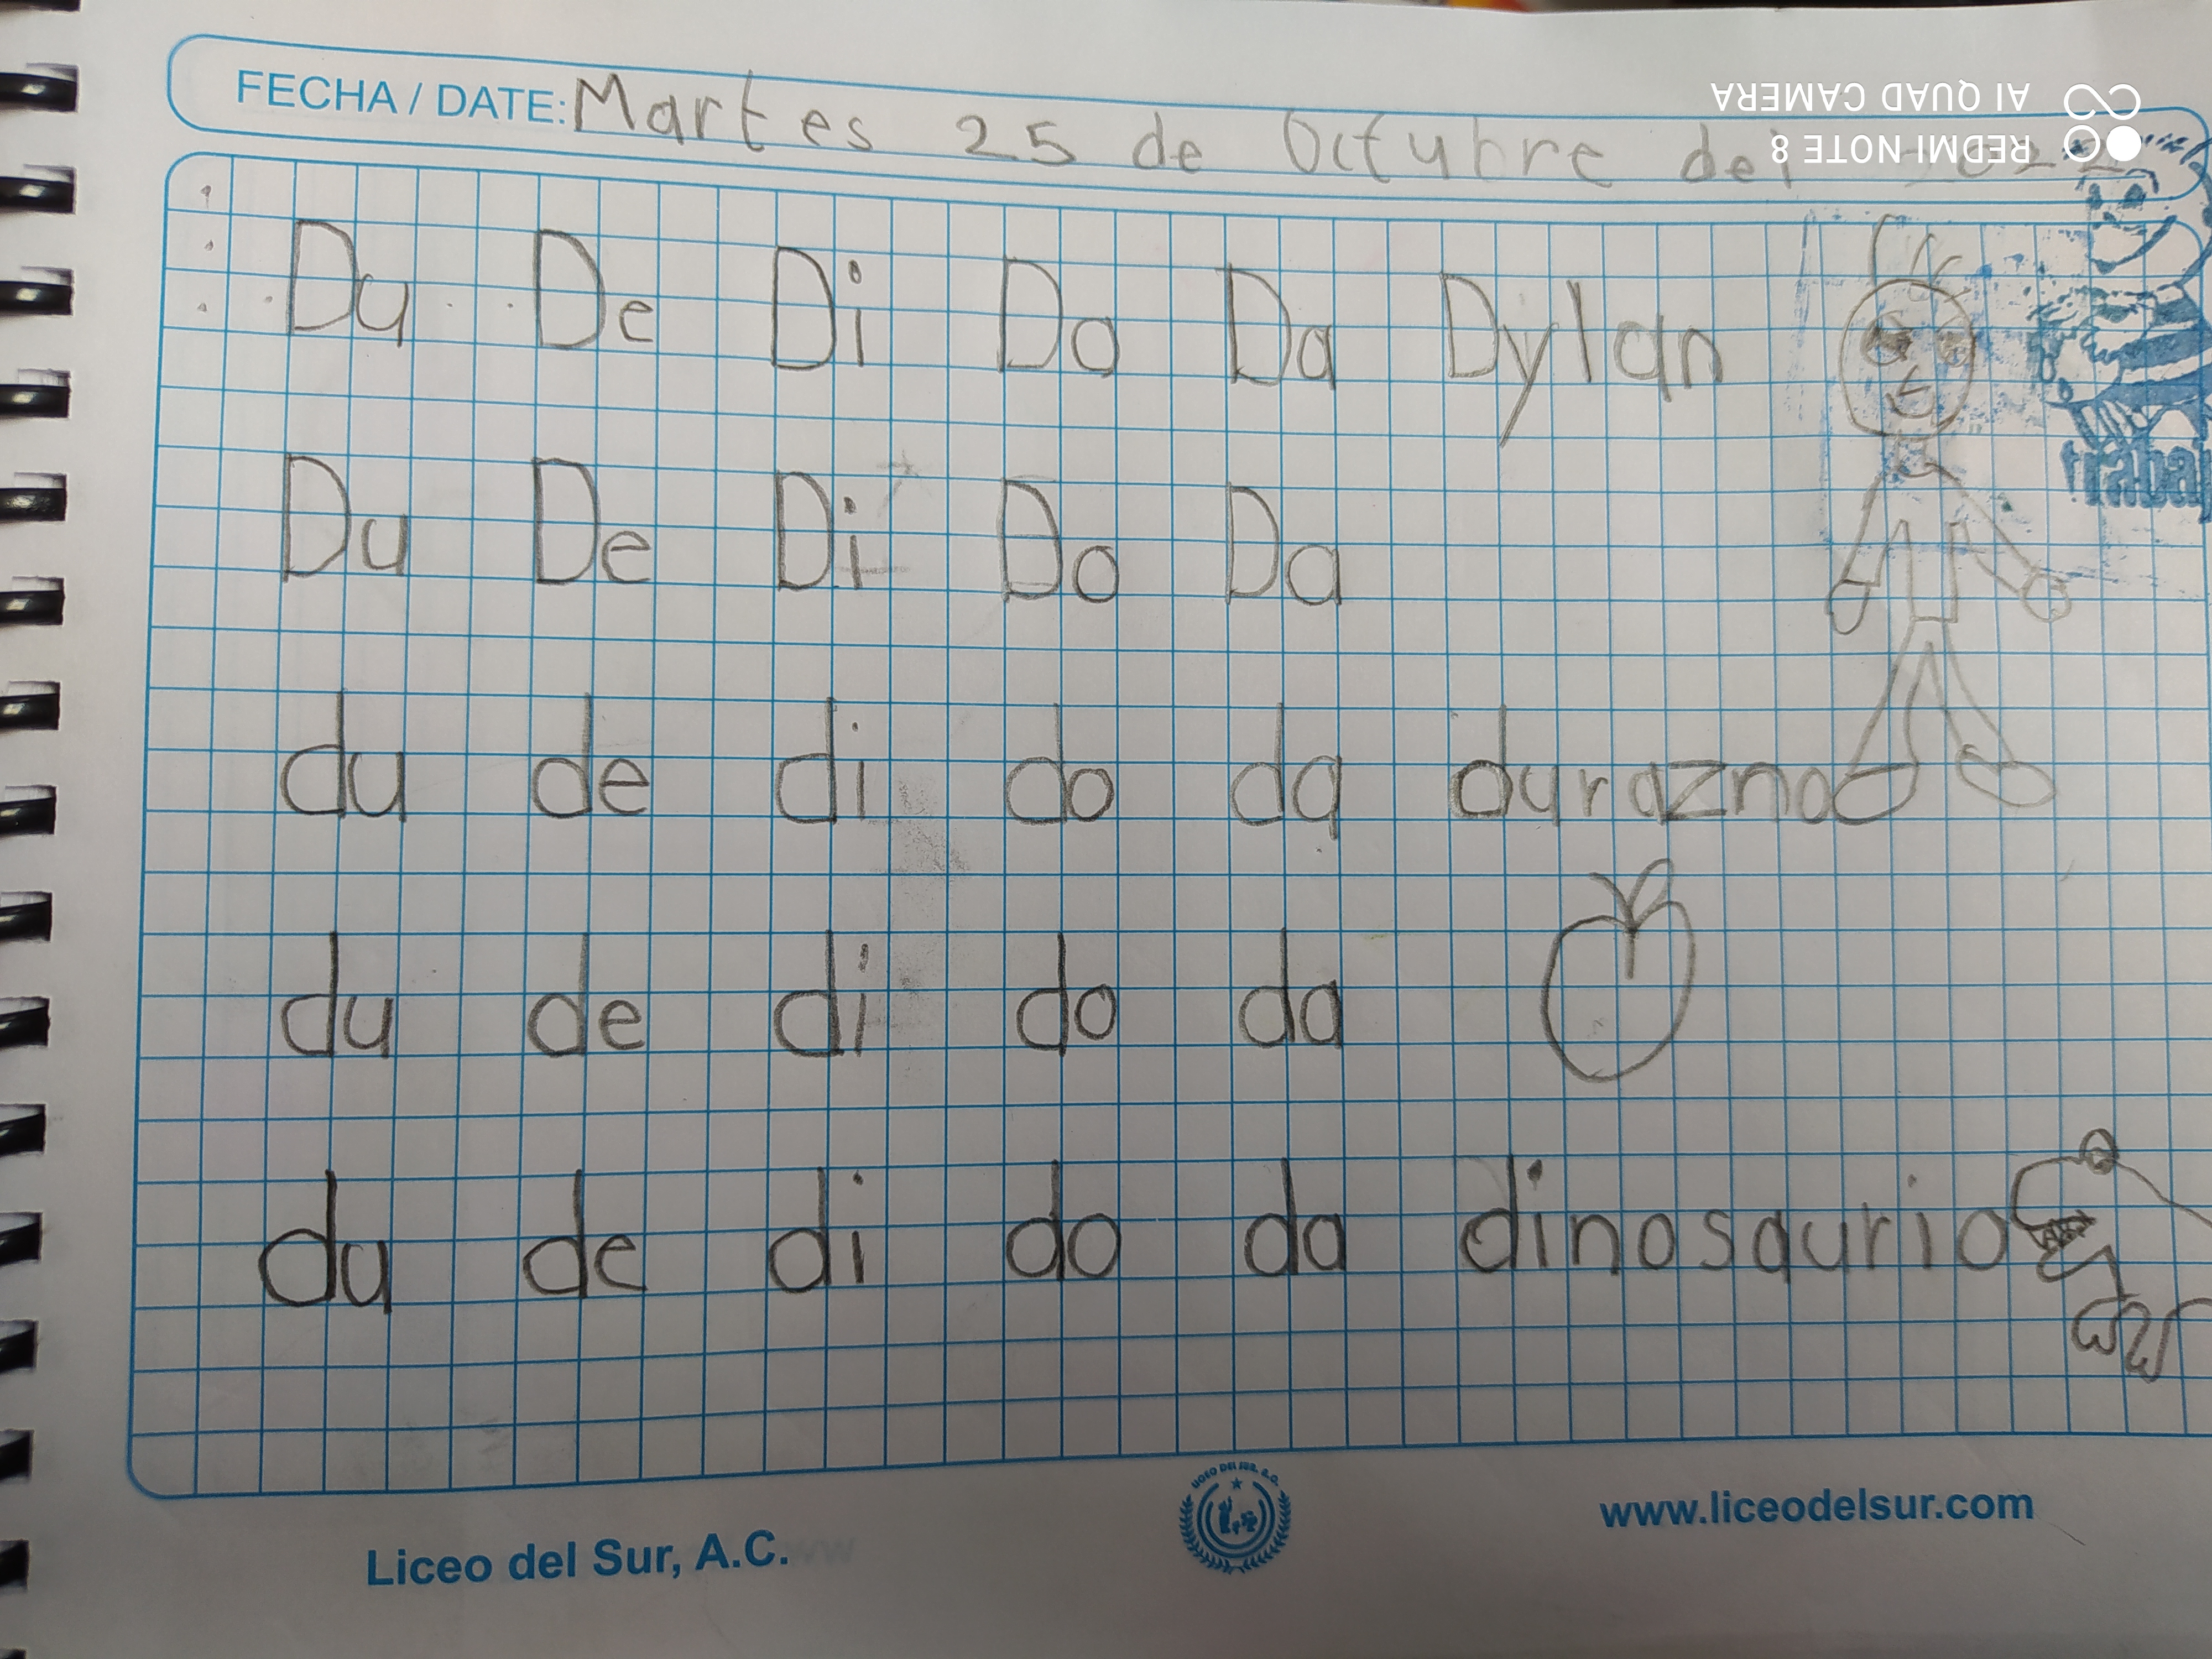 FECHA / DATE: Martes 25 de Octubre del 2022
Du De Di Do Da Dylan
Du De Di Do Da
du de di do da durazno
du de di do da
du de di do da dinosaurio
Liceo del Sur, A.C.
LICEO DEL SUR, A.C.
www.liceodelsur.com
REDMI NOTE 8
AI QUAD CAMERA